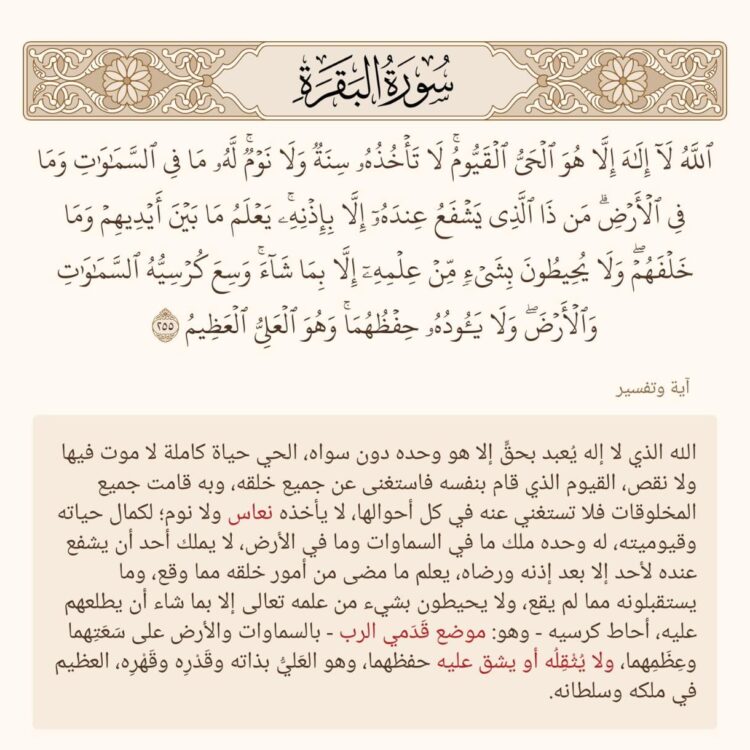 سُورَةُ البَقَرَةِ
ٱللَّهُ لَآ إِلَٰهَ إِلَّا هُوَ ٱلْحَىُّ ٱلْقَيُّومُ ۚ لَا تَأْخُذُهُۥ سِنَةٌ وَلَا نَوْمٌ ۚ لَّهُۥ مَا فِى ٱلسَّمَٰوَٰتِ وَمَا
فِى ٱلْأَرْضِ ۗ مَن ذَا ٱلَّذِى يَشْفَعُ عِندَهُۥٓ إِلَّا بِإِذْنِهِۦ ۚ يَعْلَمُ مَا بَيْنَ أَيْدِيهِمْ وَمَا
خَلْفَهُمْ ۖ وَلَا يُحِيطُونَ بِشَىْءٍ مِّنْ عِلْمِهِۦٓ إِلَّا بِمَا شَآءَ ۚ وَسِعَ كُرْسِيُّهُ ٱلسَّمَٰوَٰتِ
وَٱلْأَرْضَ ۖ وَلَا يَـُٔودُهُۥ حِفْظُهُمَا ۚ وَهُوَ ٱلْعَلِىُّ ٱلْعَظِيمُ ٢٥٥
آية وتفسير
الله الذي لا إله يُعبد بحقٍّ إلا هو وحده دون سواه، الحي حياة كاملة لا موت فيها
ولا نقص، القيوم الذي قام بنفسه فاستغنى عن جميع خلقه، وبه قامت جميع
المخلوقات فلا تستغني عنه في كل أحوالها، لا يأخذه نعاس ولا نوم؛ لكمال حياته
وقيوميته، له وحده ملك ما في السماوات وما في الأرض، لا يملك أحد أن يشفع
عنده لأحد إلا بعد إذنه ورضاه، يعلم ما مضى من أمور خلقه مما وقع، وما
يستقبلونه مما لم يقع، ولا يحيطون بشيء من علمه تعالى إلا بما شاء أن يطلعهم
عليه، أحاط كرسيه - وهو: موضع قَدَمي الرب - بالسماوات والأرض على سَعَتِهما
وعِظَمِهما، ولا يُثْقِلُه أو يشق عليه حفظهما، وهو العَليُّ بذاته وقَدْرِه وقَهْرِه، العظيم
في ملكه وسلطانه.